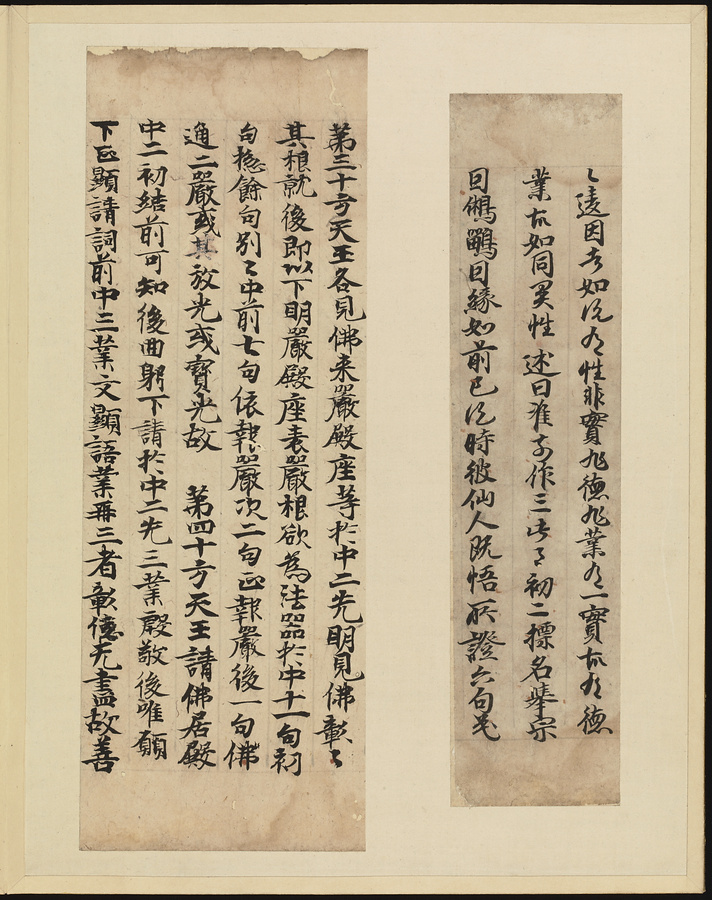 〻遠因云如說有性非實非德非業有一實亦有德
業亦如同異性 述曰准前作三 初二標名舉宗
曰鵂鶹曰緣如前已說時彼仙人既悟所證六句義
第三十方天王各見佛来嚴殿座等於中二先明見佛彰〻
其根就後即以下明嚴殿座表嚴根欲為法器於中十一句初
句揔餘句別〻中前七句依報嚴次二句正報嚴後一句佛
通二嚴或其放光或寶光故 第四十方天王請佛居殿
中二初結前可知後曲躬下請於中二先三業殷敬後唯願
下正顯請詞前中三業文顯語業再三者彰德无盡故善